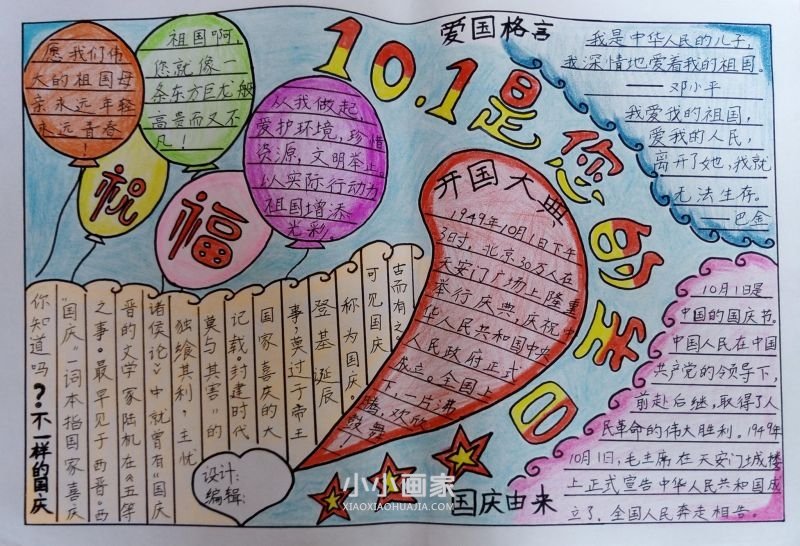 10.1是您的生日
愿我们伟
大的祖国母
亲永远年轻
永远青春
！
祖国啊，
您就像一
条东方巨龙般
高贵而又不
凡！
从我做起，
爱护环境，珍惜
资源，文明举止。
以实际行动为
祖国增添
光彩。
祝
福
爱国格言
我是中华人民的儿子，
我深情地爱着我的祖国。
——邓小平
我爱我的祖国，
爱我的人民，
离开了她，我就
无法生存。
——巴金
开国大典
1949年10月1日下午
3时，北京30万人在
天安门广场上隆重
举行庆典，庆祝中
华人民共和国中央
人民政府正式
成立。全国上
下，一片沸
腾，欢欣
鼓舞
！
10月1日是
中国的国庆节。
中国人民在中国
共产党的领导下，
前赴后继，取得了人
民革命的伟大胜利。1949年
10月1日，毛主席在天安门城楼
上正式宣告中华人民共和国成
立了，全国人民奔走相告。
国庆由来
你知道吗？：不一样的国庆
“国庆”一词本指国家喜庆
之事。最早见于西晋。西
晋的文学家陆机在《五等
诸侯论》中就曾有“国庆
独飨其利，主忧
莫与其害”的
记载封建时代
国家喜庆的大
事，莫过于帝王
登基诞辰
称为国庆。
可见国庆
古而有之。
设计：
编辑：
小小画家
XIAOXIAOHUAJIA.COM